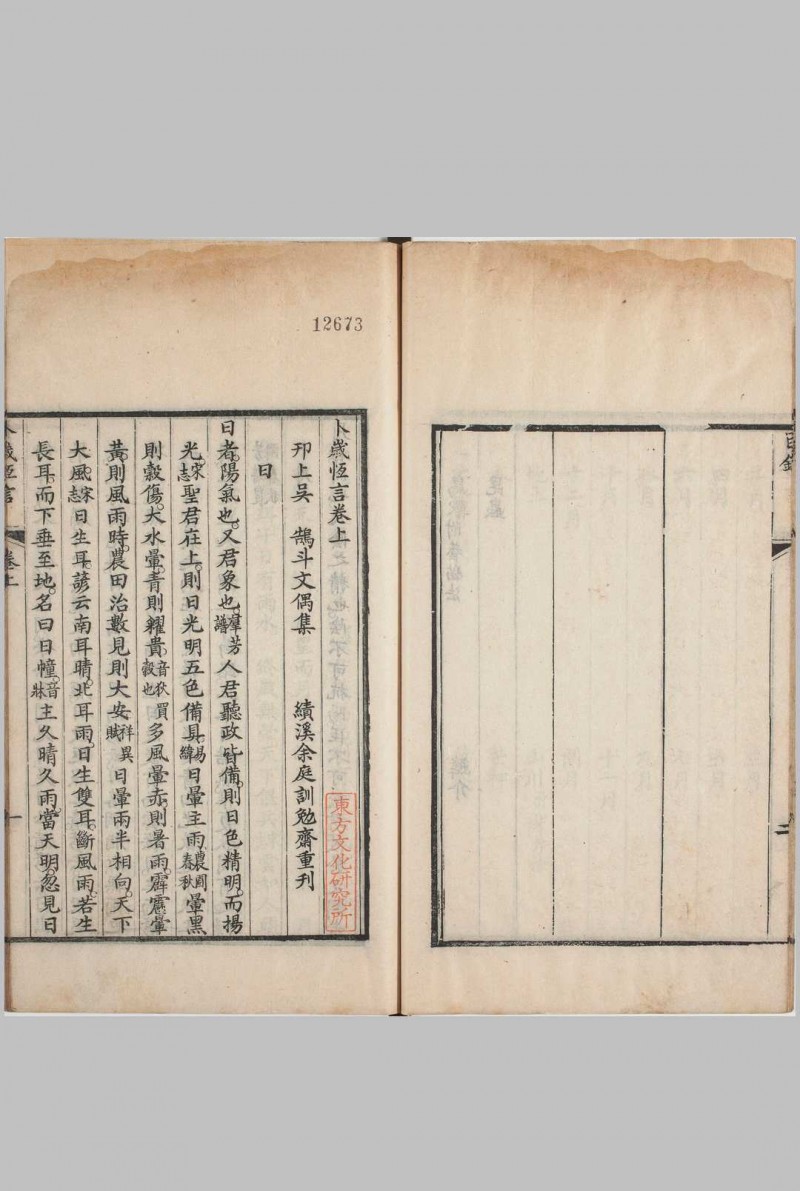 目錄
二
12673
東方文化研究所
卜歲恆言卷上
邗上吳 鵠斗文偶集 績溪余庭訓勉齋重刊
日
日者陽氣也又君象也羣芳譜人君聽政皆備則日色精明而揚
光宋志聖君在上則日光明五色備具易緯日暈主雨農圃春秋暈黑
則穀傷大水暈青則糴貴音狄買穀也多風暈赤則暑雨霹靂暈
黃則風雨時農田治數見則大安祥異賦日暈兩半相向天下
大風宋志日生耳諺云南耳晴北耳雨日生雙耳斷風雨若生
長耳而下垂至地名曰日幢音牀主久晴久雨當天明忽見日
卜歲恆言 卷上 一